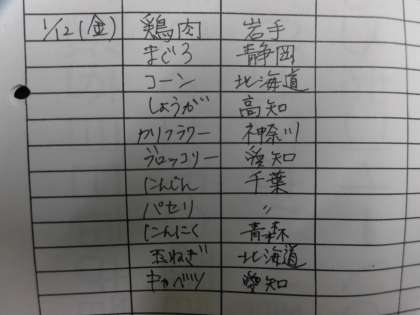 1/12(金) 鶏肉 岩手
まぐろ 静岡
コーン 北海道
しょうが 高知
カリフラワー 神奈川
ブロッコリー 愛知
にんじん 千葉
パセリ 〃
にんにく 青森
玉ねぎ 北海道
キャベツ 愛知